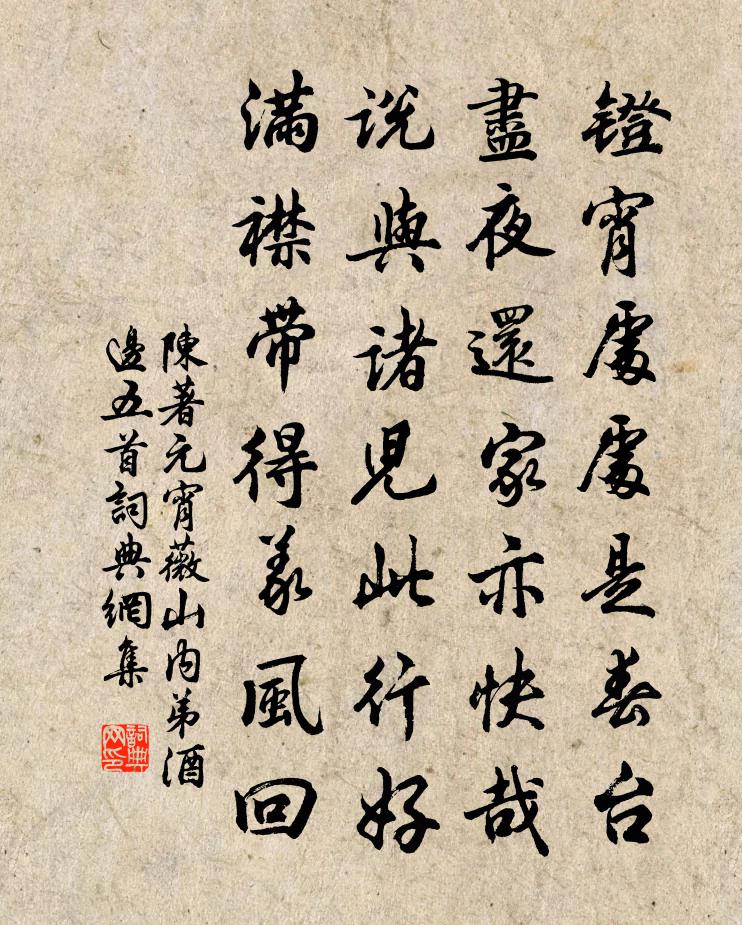 鐙宵處處是春台
盡夜還家亦快哉
説與諸兒此行好
滿襟帶得義風回
陳著元宵薇山内弟酒
邊五首詞典網集
詞典网印